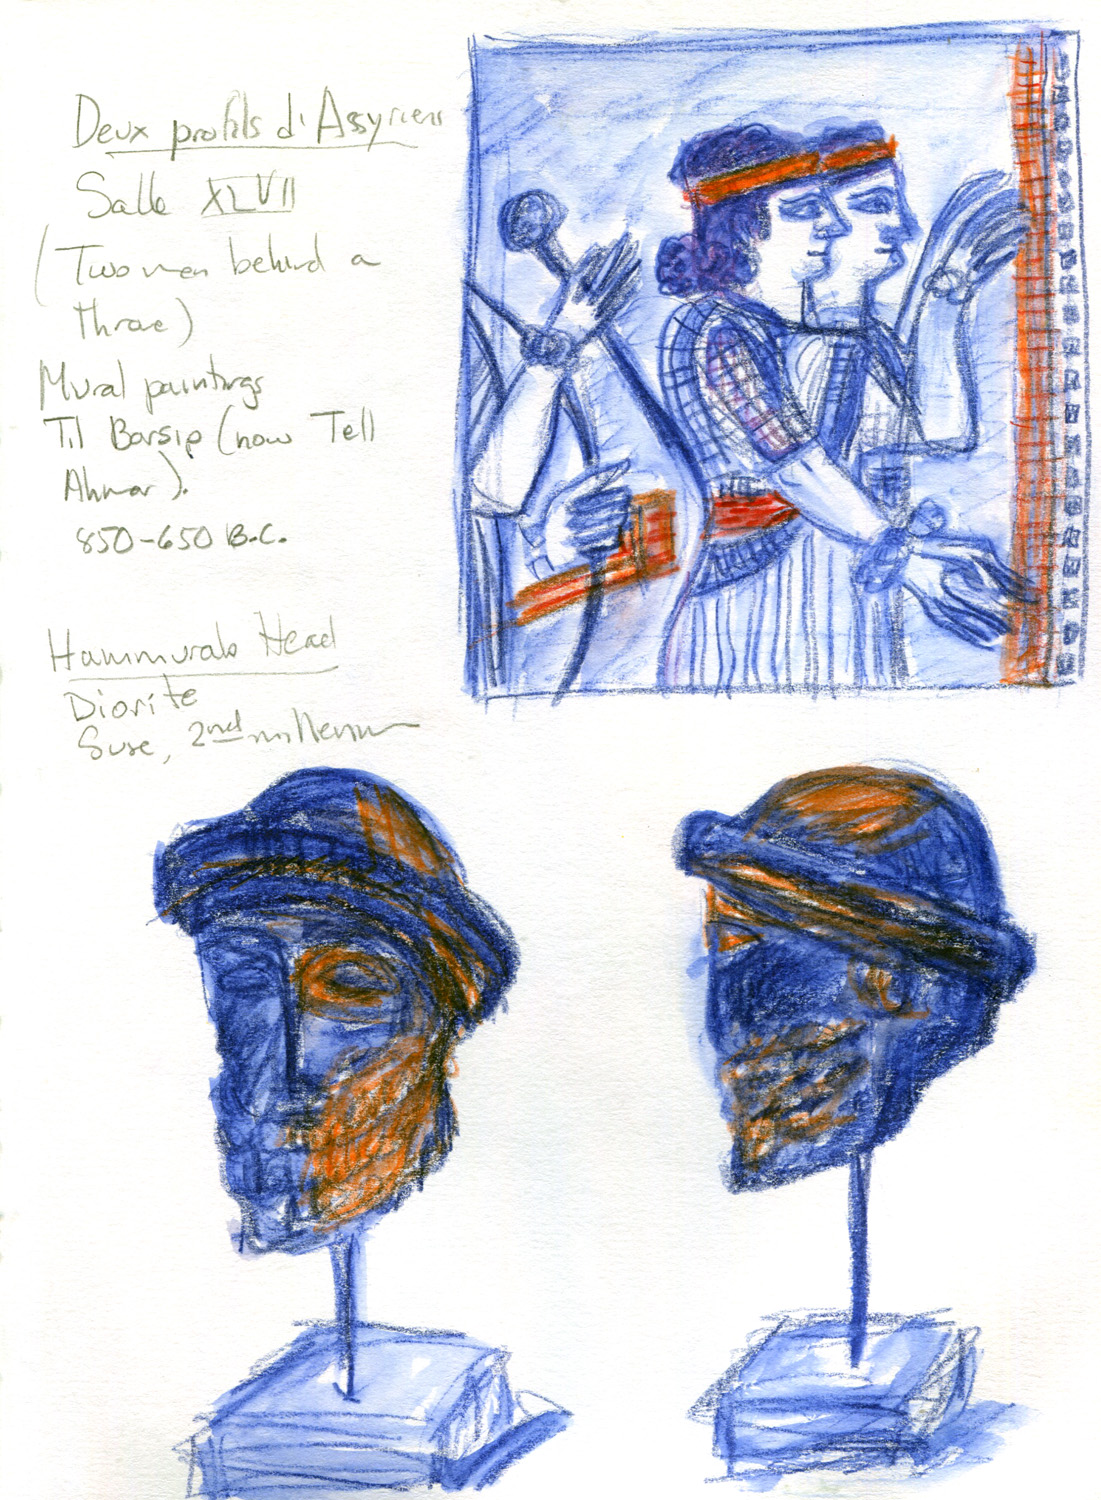 Deux profils d'Assyriens
Salle XLVII
(Two men behind a
throne)
Mural paintings
Til Barsip (now Tell
Ahmar).
850-650 B.C.
Hammurabi Head
Diorite
Suse, 2nd millennium